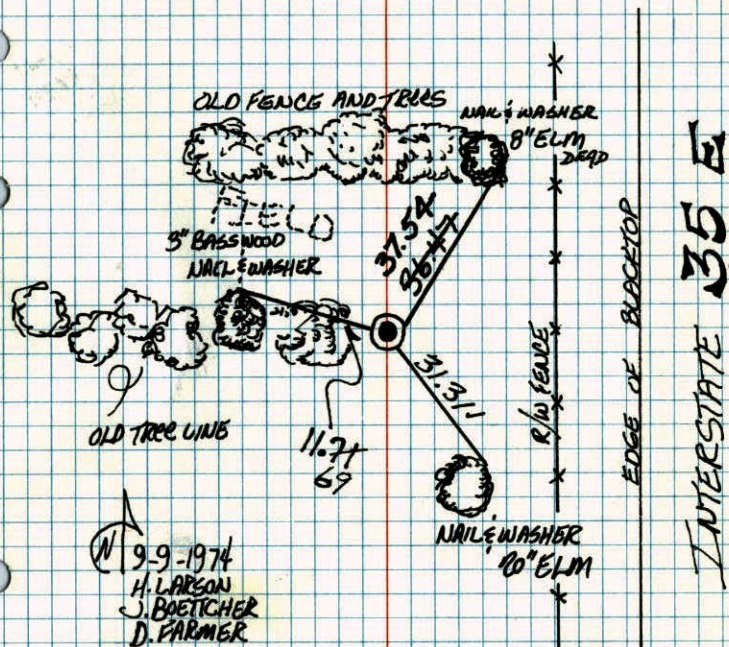 OLD FENCE AND TREES
NAIL & WASHER
8" ELM
DEAD
37.54
36.47
3" BASSWOOD
NAIL & WASHER
31.31
OLD TREE LINE
11.71
69
NAIL & WASHER
20" ELM
R/W FENCE
EDGE OF BLACKTOP
INTERSTATE 35 E
N
9-9-1974
H. LARSON
J. BOETTCHER
D. FARMER